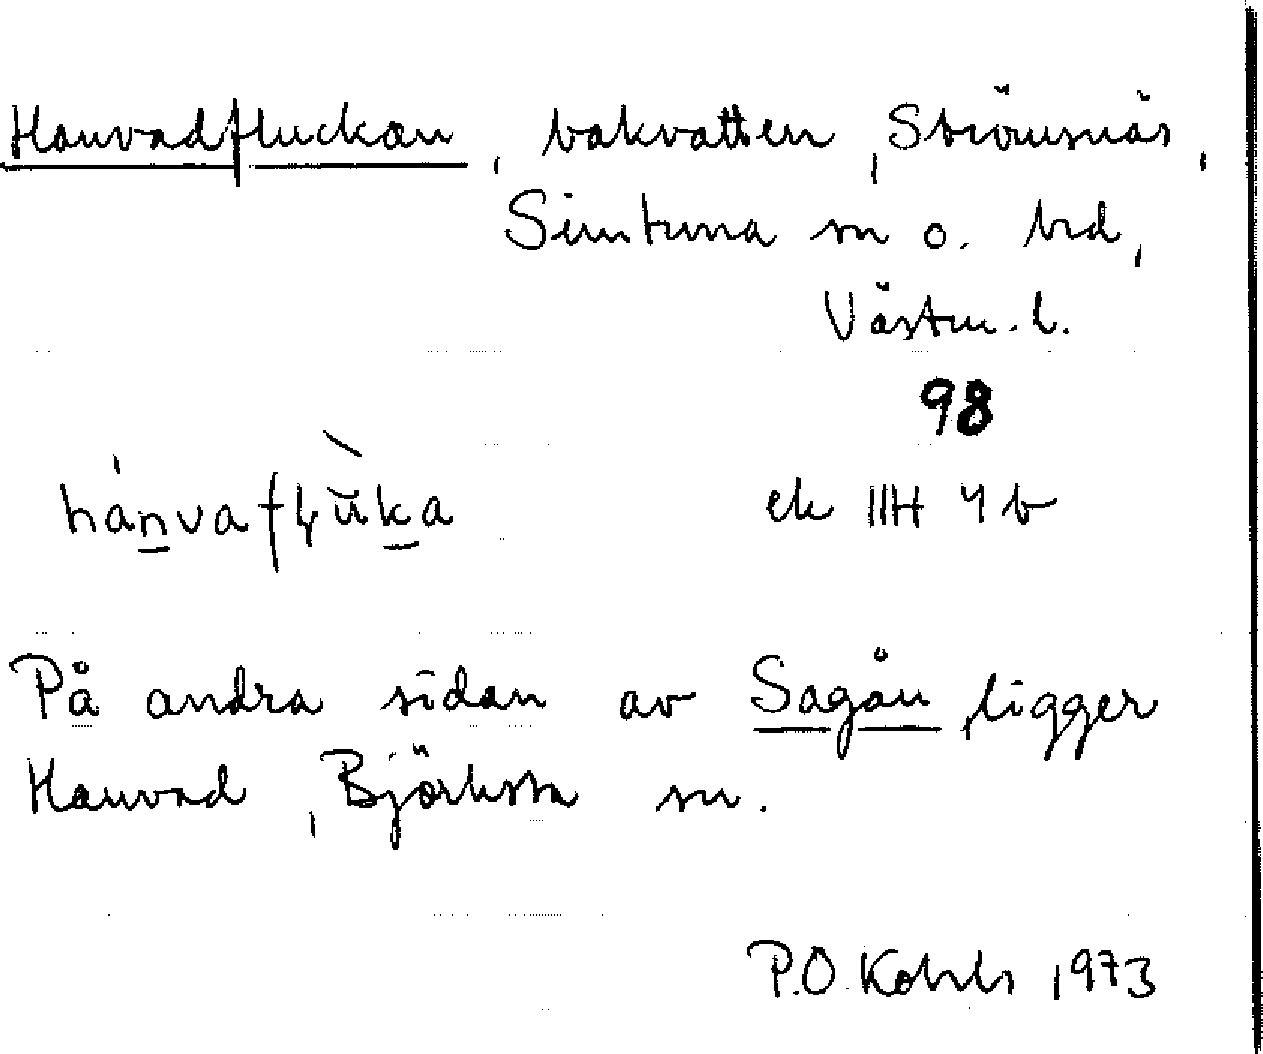 Hanvadfluckan, bakvatten, Strömsnäs,
Simtuna sn o. hd,
Västm. l.
98
ek 11H 4b
På andra sidan av Sagån, ligger
Hanvad, Björksta sn.
P.O. Kohls 1973